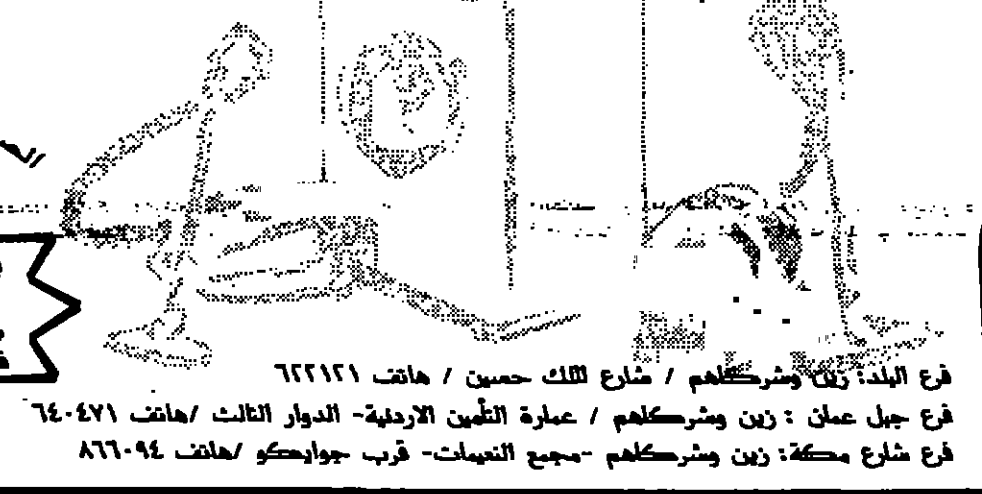 فرع البلد: زين وشركاهم / شارع الملك حسين / هاتف ٦٢٢١٢١
فرع جبل عمان : زين وشركاهم / عمارة التأمين الاردنية- الدوار الثالث /هاتف ٦٤٠٤٧١
فرع شارع مكة: زين وشركاهم -مجمع النعيمات- قرب جوايكو /هاتف ٨٦٦٠٩٤